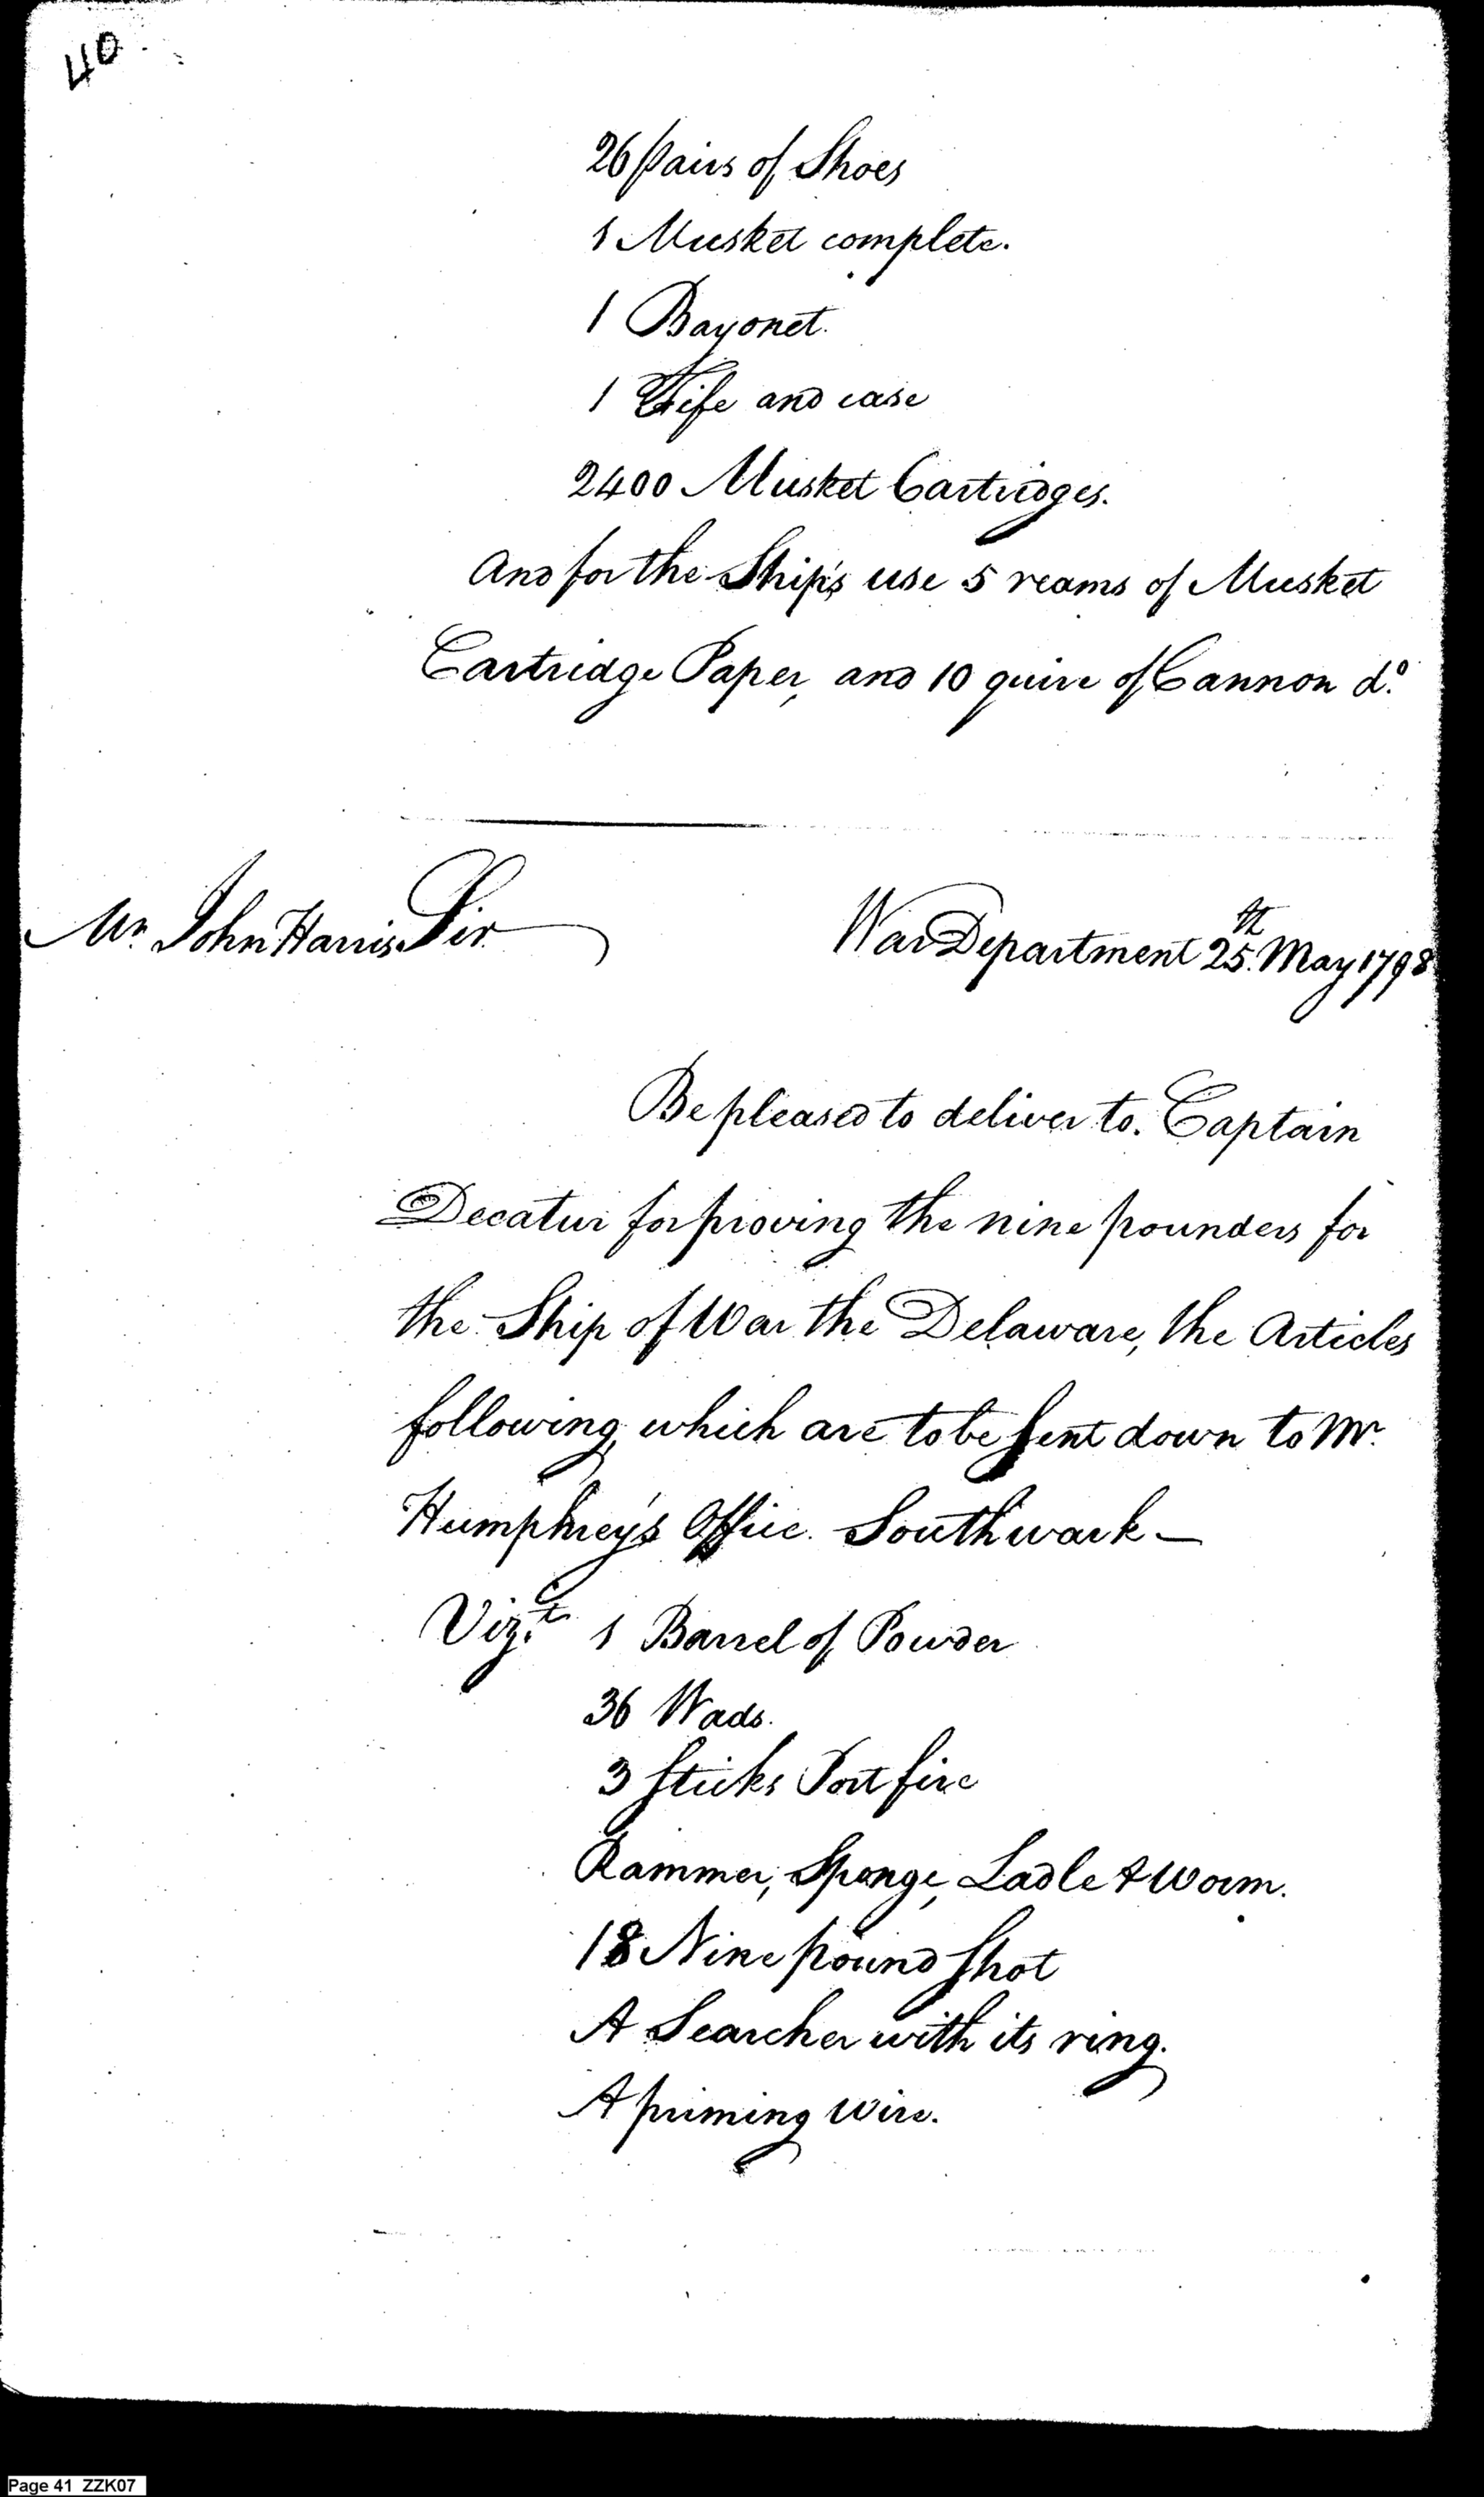 40
26 pairs of Shoes
1 Musket complete.
1 Bayonet.
1 Fife and case
2400 Musket Cartridges.
And for the Ship's use 5 reams of Musket
Cartridge Paper, and 10 quire of Cannon do.
Mr. John Harris Sir War Department 25th. May 1798
Be pleased to deliver to. Captain
Decatur for proving the nine pounders for
the Ship of War the Delaware, the Articles
following, which are to be sent down to Mr.
Humphrey's Office. Southwark —
Vizt. 1 Barrel of Powder
36 Wads.
3 sticks Port fire
Rammer, Sponge, Ladle & Worm.
18 Nine pound shot
A Searcher with its ring.
A priming wire.
Page 41 ZZK07